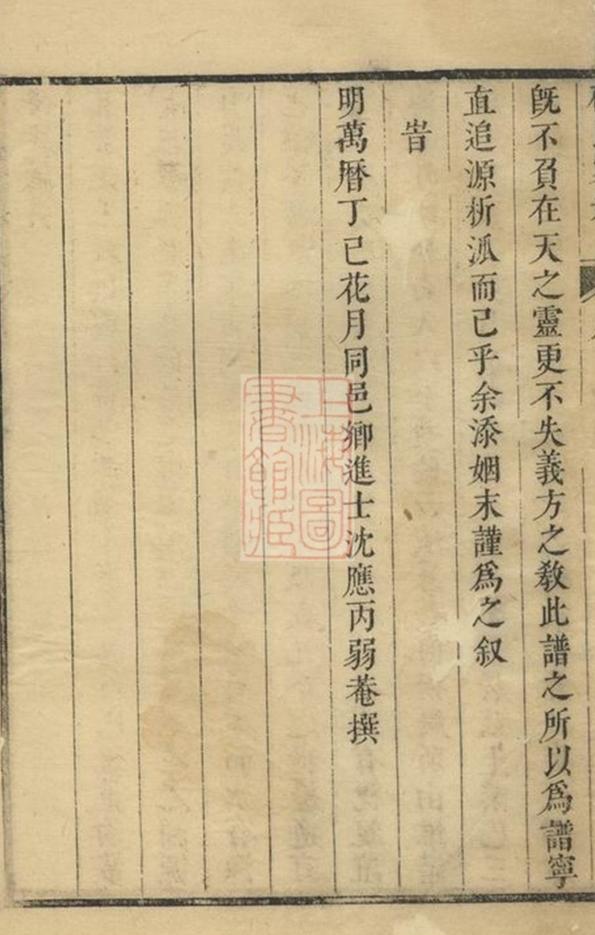 既不負在天之靈更不失義方之教此譜之所以爲譜寧
直追源析派而已乎余添姻末謹爲之叙
旹
明萬曆丁巳花月同邑鄉進士沈應丙弱菴撰
上海圖書館藏